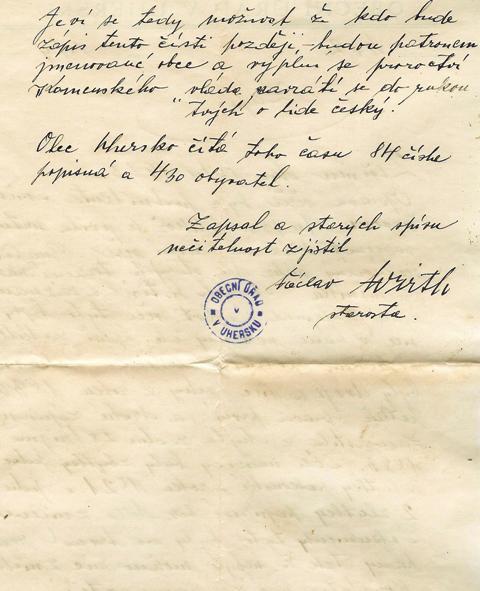 Jeví se tedy možnost že kdo bude
zápis tento čísti později, budou patronem
jmenované obce a výplní se proroctví
Komenského vláda navrátí se do rukou
"Tvých o lide český.
Obec Uhersko čítá toho času 84 čísla
popisná a 430 obyvatel.
Zapsal a starých spisů
nečitelnost zjistil
Václav Wirth
starosta.
OBECNÍ ÚŘAD
V UHERSKU